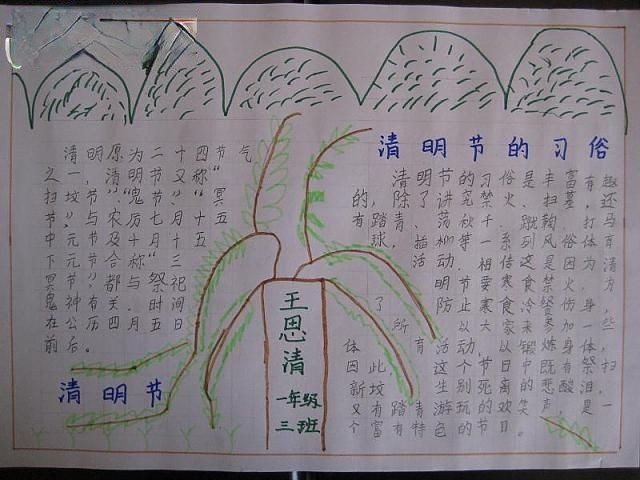 清明节的习俗
清明节的习俗是丰富有趣
的，除了讲究禁火、扫墓，还
有踏青、荡秋千、蹴鞠、打马
球、插柳等一系列风俗体育
活动。相传这是因为清
明节要寒食禁火，为
了防止寒食冷餐伤身，
所以大家来参加一些
体育活动，以锻炼身体。
因此，这个节日中既有祭扫
新坟生别死离的悲酸泪，
又有踏青游玩的欢笑声，是一
个富有特色的节日。
清明原为二十四节气
之一，清明节又称“
扫坟节”“鬼节”“冥
节”与农历七月十五
中元节及十月十五
下元节合称“三
冥节”，都与祭祀
鬼神有关。时间
在公历四月五日
前后。
清明节
王恩清
一年级
三班